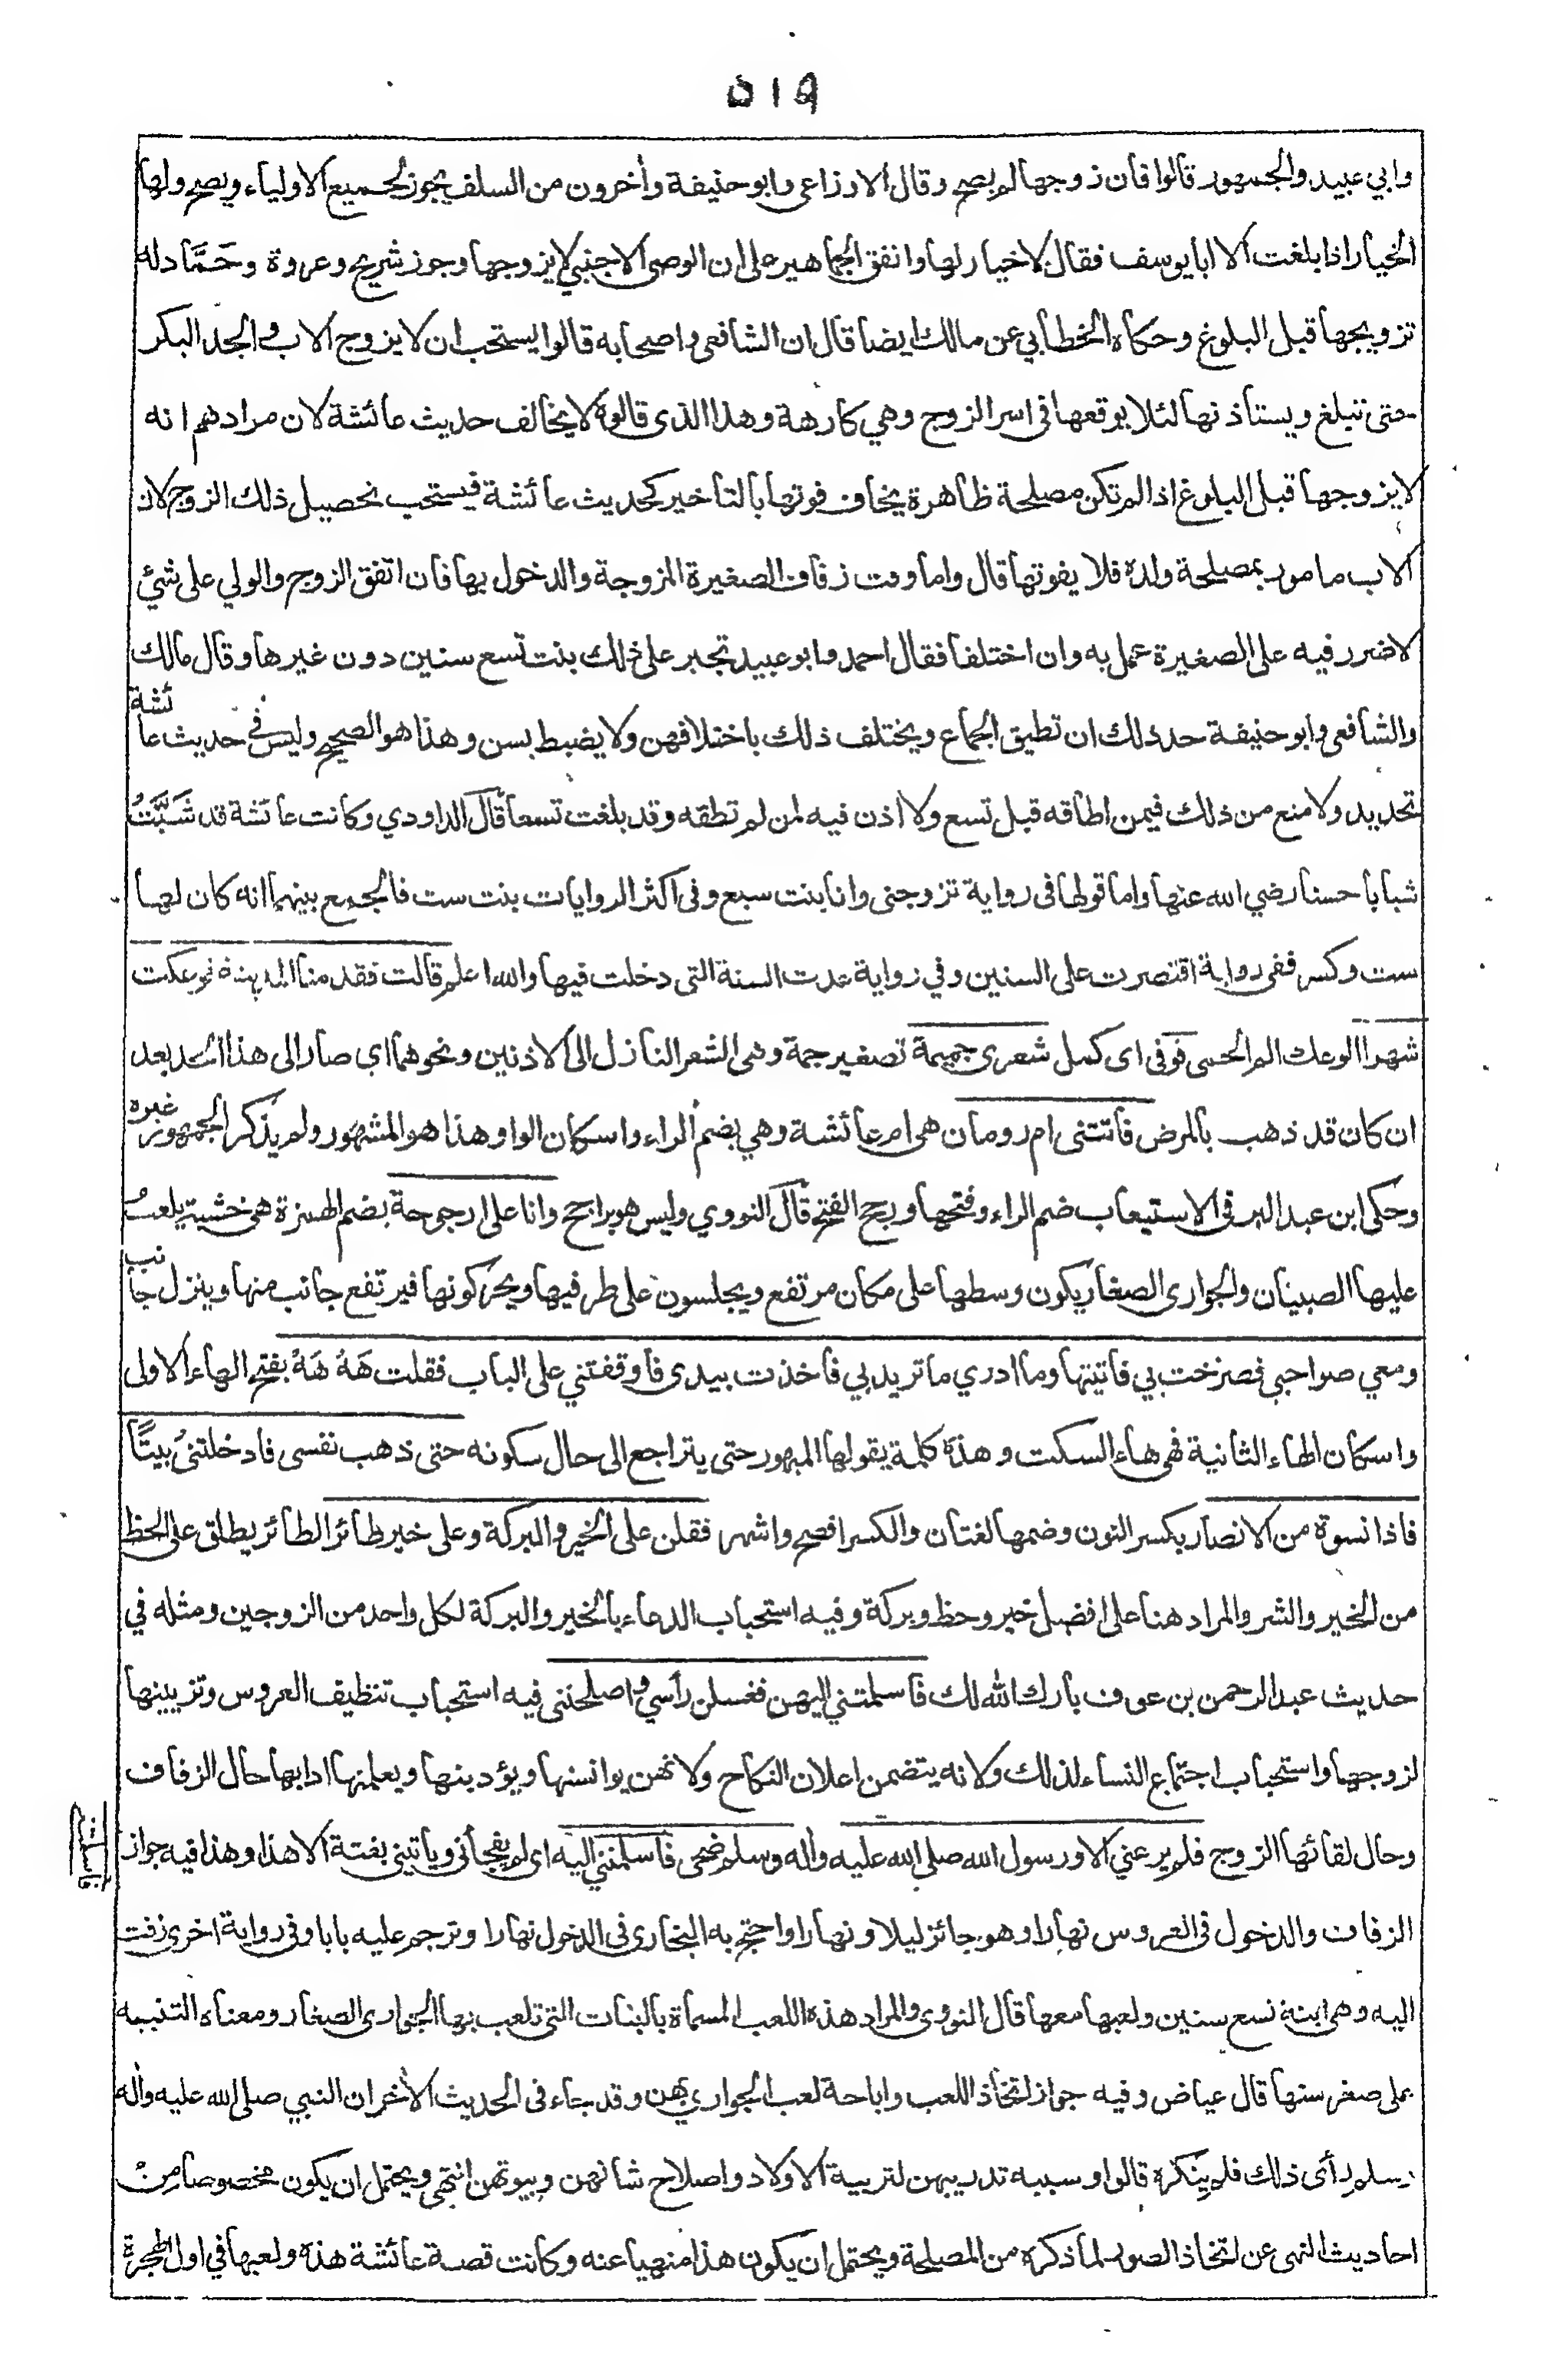 ٥١٩
وابي عبيد والجمهور قالوا فان زوجها لم يصح وقال الاوزاعي وابو حنيفة وأخرون من السلف يجوز لجميع الاولياء ويصح ولها
الخيار اذا بلغت الا ابا يوسف فقال لا خيار لها واتفق الجماهير على ان الوصي الاجنبي لا يزوجها وجوز شريح وعروة وحَمَّاد له
تزويجها قبل البلوغ وحكاه الخطابي عن مالك ايضا قال ان الشافعي واصحابه قالوا يستحب ان لا يزوج الاب والجد البكر
حتى تبلغ ويستأذنها لئلا يوقعها في اسر الزوج وهي كارهة وهذا الذي قالوه لا يخالف حديث عائشة لان مرادهم انه
لا يزوجها قبل البلوغ اذا لم تكن مصلحة ظاهرة يخاف فوتها بالتأخير كحديث عائشة فيستحب تحصيل ذلك الزوج لان
الاب مامور بمصلحة ولده فلا يفوتها قال واما وقت زفاف الصغيرة المزوجة والدخول بها فان اتفق الزوج والولي على شيء
لا ضرر فيه على الصغيرة عمل به وان اختلفا فقال احمد وابو عبيد تجبر على ذلك بنت تسع سنين دون غيرها وقال مالك
والشافعي وابو حنيفة حد ذلك ان تطيق الجماع ويختلف ذلك باختلافهن ولا يضبط بسن وهذا هو الصحيح وليس في حديث عائشة
تحديد ولا منع من ذلك فيمن اطاقه قبل تسع ولا اذن فيه لمن لم تطقه وقد بلغت تسعا قال الداودي وكانت عائشة قد شَبَّتُ
شبابا حسنا رضي الله عنها واما قولها في رواية تزوجني وانا بنت سبع وفي اكثر الروايات بنت ست فالجمع بينهما انه كان لها
ست وكسر ففي رواية اقتصرت على السنين وفي رواية عدت السنة التي دخلت فيها والله اعلم قالت فقدمنا المدينة فوعكت
شهرا الوعك الم الحمى فوفى اي كمل شعري جميمة تصغير جمة وهي الشعر النازل الى الاذنين ونحوهما اي صار الى هذا الحد بعد
ان كان قد ذهب بالمرض فاتتني ام رومان هي ام عائشة وهي بضم الراء واسكان الواو هذا هو المشهور ولم يذكر الجمهور غيره
وحكى ابن عبد البر في الاستيعاب ضم الراء وفتحها ورجح الفتح قال النووي وليس هو براجح وانا على ارجوحة بضم الهمزة هي خشبة يلعبُ
عليها الصبيان والجواري الصغار يكون وسطها على مكان مرتفع ويجلسون على طرفيها ويحركونها فيرتفع جانب منها وينزل جانب
ومعي صواحبي فصرخت بي فاتيتها وما ادري ما تريد بي فاخذت بيدي فاوقفتني على الباب فقلت هَهْ هَهْ بفتح الهاء الاولى
واسكان الهاء الثانية فهي هاء السكت وهذه كلمة يقولها المبهور حتى يتراجع الى حال سكونه حتى ذهب نفسي فادخلتني بيتًا
فاذا نسوة من الانصار بكسر النون وضمها لغتان والكسر افصح واشهر فقلن على الخير والبركة وعلى خير طائر الطائر يطلق على الحظ
من الخير والشر والمراد هنا على افضل خير وحظ وبركة وفيه استحباب الدعاء بالخير والبركة لكل واحد من الزوجين ومثله في
حديث عبد الرحمن بن عوف بارك الله لك فاسلمتني اليهن فغسلن رأسي واصلحنني فيه استحباب تنظيف العروس وتزيينها
لزوجها واستحباب اجتماع النساء لذلك ولانه يتضمن اعلان النكاح ولانهن يوانسنها ويؤدبنها ويعلمنها ادابها حال الزفاف
وحال لقائها الزوج فلم يرعني الا ورسول الله صلى الله عليه وأله وسلم ضحى فاسلمنني اليه اي لم يفجأني وياتيني بغتة الا هذا وهذا فيه جواز
الزفاف والدخول في العروس نهارا وهو جائز ليلا ونهارا واحتج به البخاري في الدخول نهارا وترجم عليه بابا وفي رواية اخرى زفت
اليه وهي ابنة تسع سنين ولعبها معها قال النووي والمراد هذه اللعب المسماة بالبنات التي تلعب بها الجواري الصغار ومعناه التنبيه
على صغر سنها قال عياض وفيه جواز اتخاذ اللعب واباحة لعب الجواري بهن وقد جاء في الحديث الأخر ان النبي صلى الله عليه وأله
وسلم رأى ذلك فلم ينكره قالوا وسببه تدريبهن لتربية الاولاد واصلاح شانهن وبيوتهن انتهى ويحتمل ان يكون مخصوصا مِنْ
احاديث النهي عن اتخاذ الصور لما ذكره من المصلحة ويحتمل ان يكون هذا منهيا عنه وكانت قصة عائشة هذه ولعبها في اول الهجرة